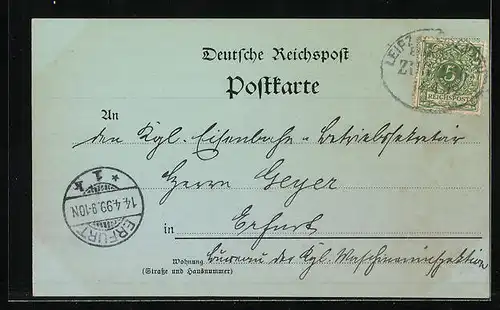 Deutsche Reichspost
Postkarte
LEIPZ
ZUG
5
REICHSPOST
An
den Kgl. Eisenbahn-Betriebssekretär
Herrn Geyer
in Erfurt
Wohnung Bureau der Kgl. Maschineninspektion
(Straße und Hausnummer)
ERFURT
14.4.99.9-10N
* 1 k